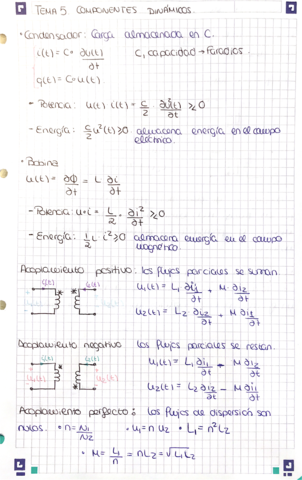 TEMA 5 COMPONENTES DINÁMICOS.
· Condensador: Carga almacenada en C.
i(t) = C · ∂u(t)/∂t    C, capacidad → Faradios.
q(t) = C·u(t)
- Potencia: u(t) i(t) = C/2 ∂u²(t)/∂t ≷ 0
- Energía: C/2 u²(t) ≥ 0 almacena energía en el campo
eléctrico.
· Bobina
u(t) = ∂Φ/∂t = L ∂i/∂t
- Potencia: u·i = L/2 · ∂i²/∂t ≷ 0
- Energía: 1/2 L i² ≥ 0 almacena energía en el campo
magnético.
Acoplamiento positivo: los flujos parciales se suman.
i₁(t) i₂(t) u₁(t) = L₁ ∂i₁/∂t + M ∂i₂/∂t
u₂(t) = L₂ ∂i₂/∂t + M ∂i₁/∂t
Acoplamiento negativo: los flujos parciales se restan.
i₁(t) i₂(t) u₁(t) = L₁ ∂i₁/∂t - M ∂i₂/∂t
u₁(t) u₂(t) u₂(t) = L₂ ∂i₂/∂t - M ∂i₁/∂t
Acoplamiento perfecto: los flujos de dispersión son
nulos. · n = N₁/N₂ · u₁ = n u₂ · L₁ = n² L₂
· M = L₁/n = nL₂ = √L₁L₂